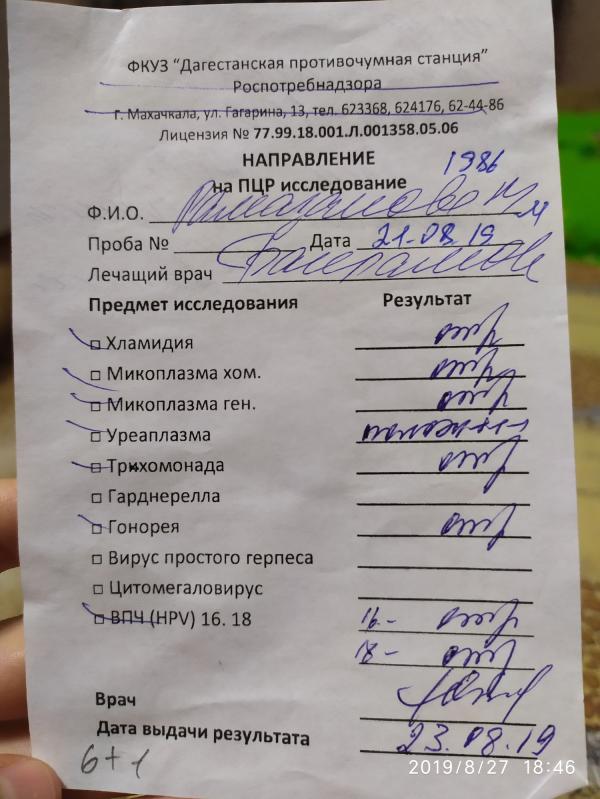 ФКУЗ "Дагестанская противочумная станция"
Роспотребнадзора
г. Махачкала, ул. Гагарина, 13, тел. 623368, 624176, 62-44-86
Лицензия № 77.99.18.001.Л.001358.05.06
НАПРАВЛЕНИЕ
1986
на ПЦР исследование
Ф.И.О.
Проба № Дата 21.08.19
Лечащий врач
Предмет исследования Результат
Хламидия отр
Микоплазма хом. отр
Микоплазма ген. отр
Уреаплазма
Трихомонада отр
Гарднерелла
Гонорея отр
Вирус простого герпеса
Цитомегаловирус
ВПЧ (HPV) 16. 18 16 - отр
18 - отр
Врач
Дата выдачи результата 23.08.19
6+1
2019/8/27 18:46